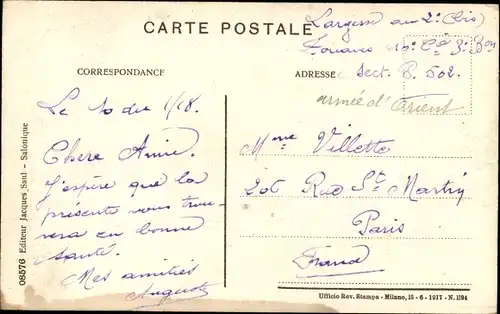 CARTE POSTALE
au 2e (bis)
Zouaves 10e Cie 3e Bon
CORRESPONDANCE
ADRESSE
Sect. P. 502.
armée d'Orient
Le 10 du 1/18.
Chere Amie.
J'espère que la
présente vous trou-
vera en bonne
santé.
Mes amitiés
Auguste
Mme Villette
206 Rue St Martin
Paris
France
08576 Editeur Jacques Saul - Salonique
Ufficio Rev. Stampa - Milano, 15 - 6 - 1917 - N. 1194